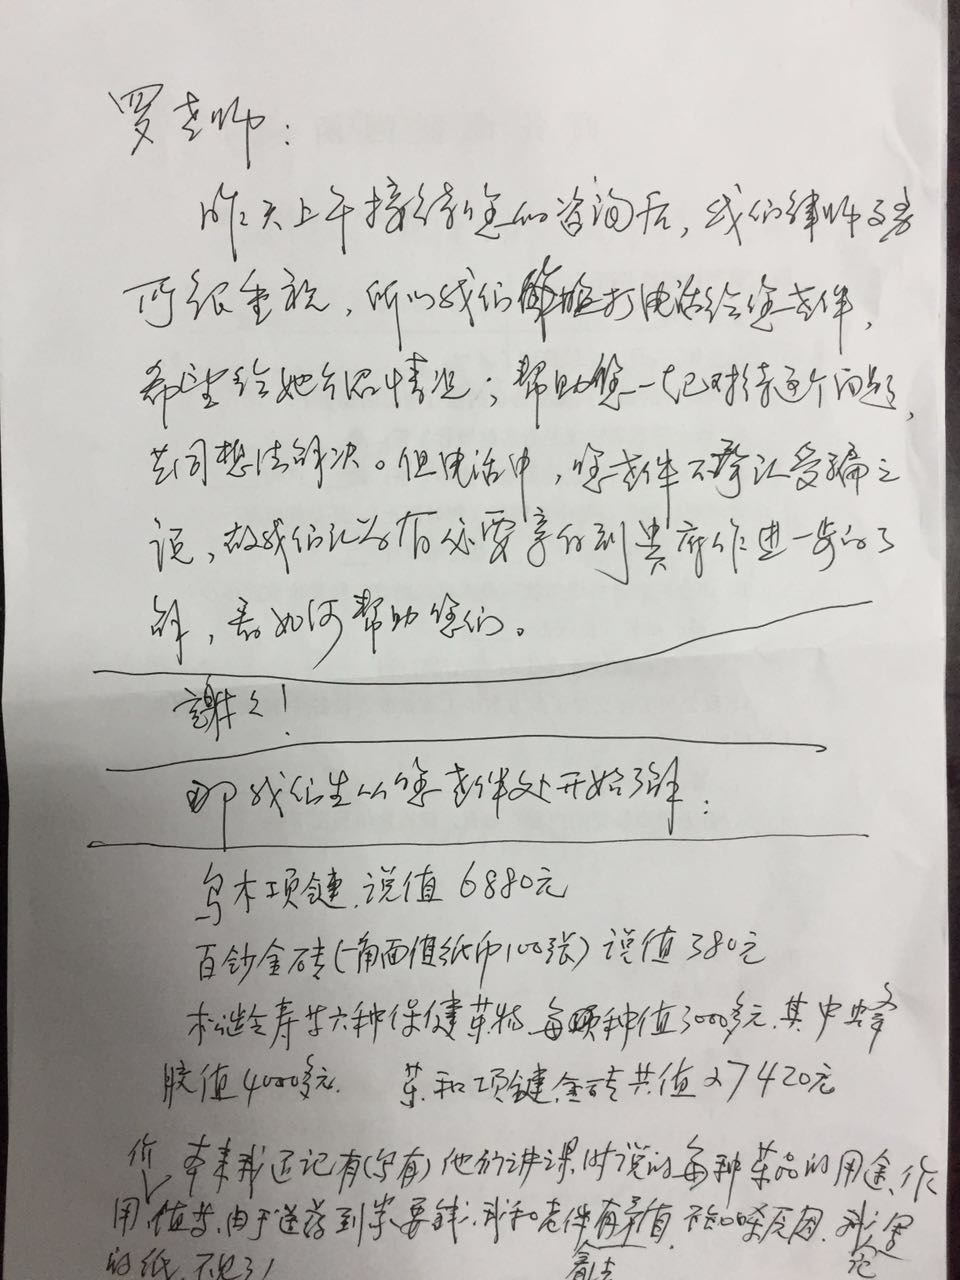 罗老师：
昨天上午接待您的咨询后，我们律师事务
所很重视，所以我们打电话给您老伴，
希望给她介绍情况；帮助您一起对待这个问题，
共同想法解决。但电话中，您老伴不承认受骗之
说，故我们认为有必要亲自到贵府作进一步的了
解，看如何帮助您们。
謝々！
即我们先从您老伴处开始了解：
乌木项鏈，说值6880元
百钞金砖（一角面值纸币100张）说值380元
寿等六种保健药物，每种值3000多元，其中蜂
胶值4000多元 药和项鏈金砖共值27420元
本来我还记有（写有）他们讲课时说的每种药品的用途、作
用、价值等，由于送药到家要钱，我和老伴有矛盾，我写
的纸不见了